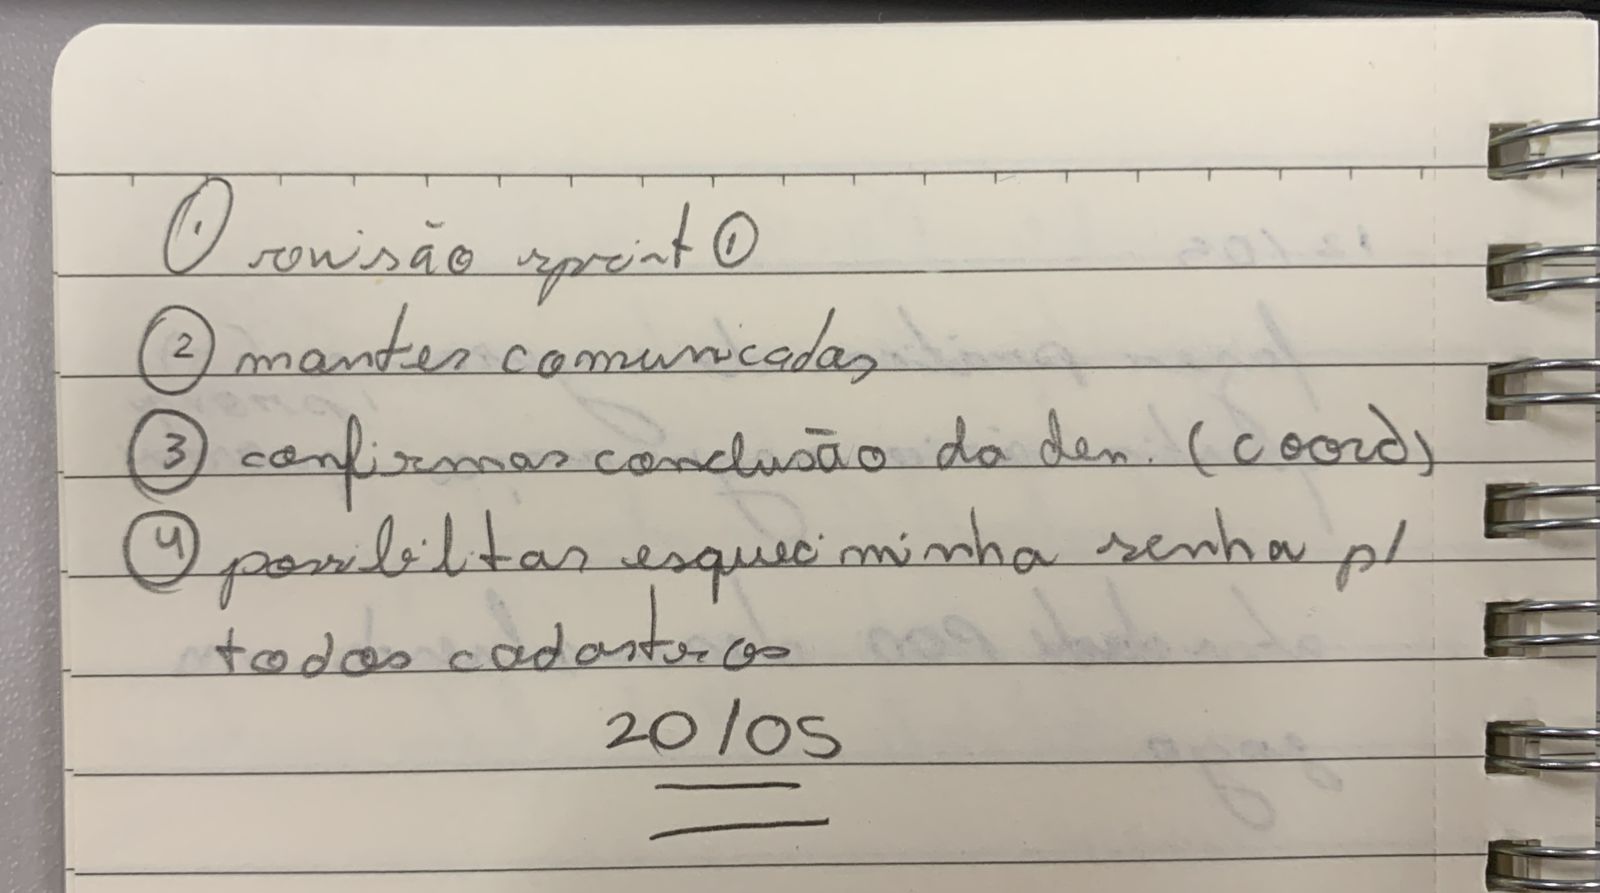 ① revisão sprint ①
② manter comunicadas
③ confirmar conclusão da den. (coord)
④ possibilitar esqueci minha senha p/
todos cadastros
20/05